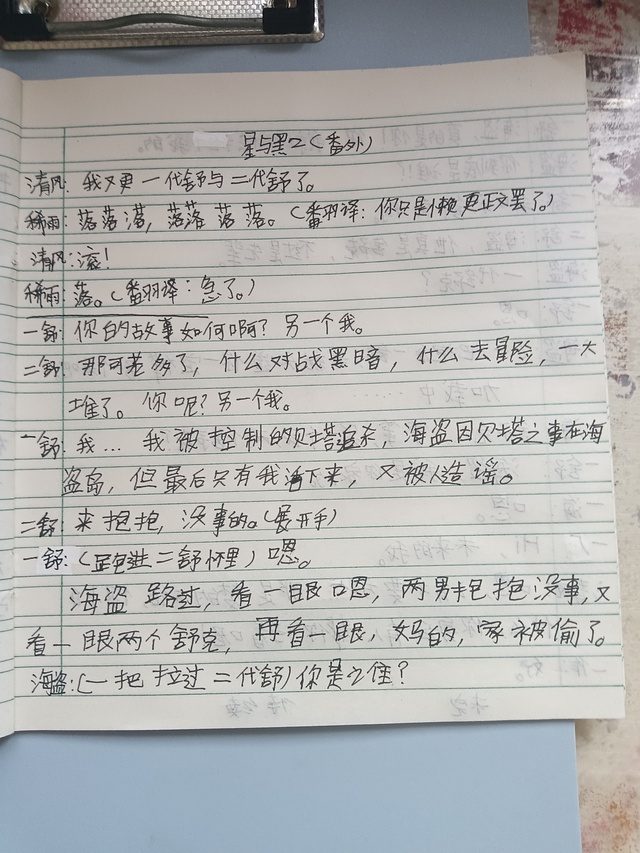 星与黑2(番外)
清风:我又更一代舒与二代舒了。
稀雨:落落落,落落落落。(番羽译:你只是懒更正文罢了。)
清风:滚!
稀雨:落。(番羽译:急了。)
一舒:你的故事如何啊?另一个我。
二舒:那可若多了,什么对战黑暗,什么去冒险,一大
堆了。你呢?另一个我。
一舒:我...我被控制的贝塔追杀,海盗因贝塔之事在海
盗岛,但最后只有我活下来,又被人造谣。
二舒:来抱抱,没事的。(展开手)
一舒:(进二舒怀里)嗯。
海盗路过,看一眼嗯,两男抱抱没事,又
看一眼两个舒克,再看一眼,妈的,家被偷了。
海盗:(一把拉过二代舒)你是之隹?